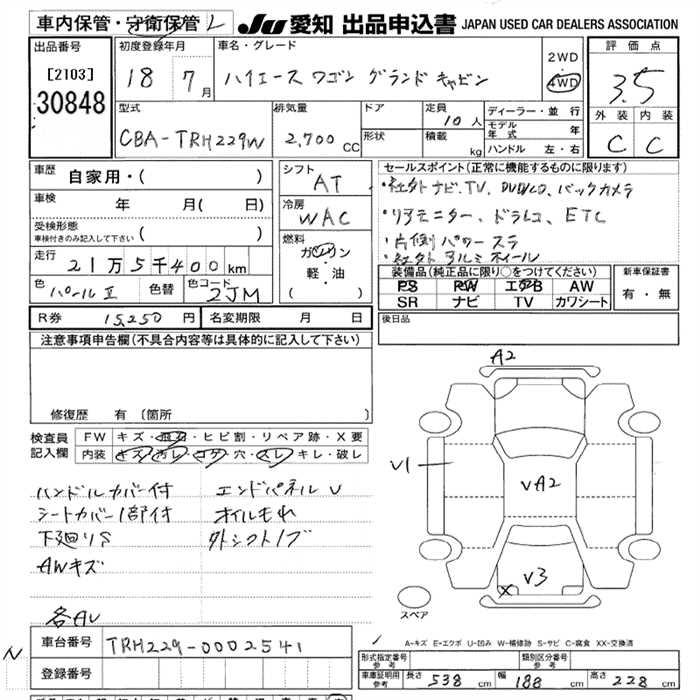 車内保管・守衛保管 L
JU 愛知 出品申込書 JAPAN USED CAR DEALERS ASSOCIATION
出品番号
[2103]
30848
初度登録年月
18 7月
車名・グレード
ハイエース ワゴン グランド キャビン
2WD
4WD
評価点
3.5
外装 内装
C C
型式
CBA-TRH229W
排気量
2,700 CC
ドア
形状
定員 10人
積載 kg
ディーラー・並行
モデル年式 年
ハンドル 左・右
車歴 自家用・( )
車検 年 月( 日)
受検形態
車検付きのみ記入して下さい ( )
走行 21万5千400km
色 パールII 色替 色コード 2JM
シフト AT
冷房 WAC
燃料
ガソリン
・
軽・油
( )
セールスポイント(正常に機能するものに限ります)
・社外ナビ、TV、DVD/CD、バックカメラ
・リアモニター、ドラレコ、ETC
・片側パワースラ
・社外アルミホイール
装備品(純正品に限り○をつけてください)
PS PW エアB AW
SR ナビ TV カワシート
新車保証書
有・無
R券 15,250円 名変期限 月 日
後日品
注意事項申告欄(不具合内容等は具体的に記入して下さい)
修復歴 有 (箇所 )
検査員記入欄
FW キズ・飛石・ヒビ割・リペア跡・X要
内装 キズ・汚レ・コゲ・穴・スレ・キレ・破レ
ハンドルカバー付 エンドパネルU
シートカバー1部付 オイルもれ
下廻りS 外シフトノブ
AWキズ
各AU
A2
U1
VA2
V3
X
スペア
N
車台番号 TRH229-0002541
登録番号
A-キズ E-エクボ U-凹み W-補修跡 S-サビ C-腐食 XX-交換済
形式指定番号 参考
類別区分番号 参考
車庫証明用 参考 長さ 538 cm 幅 188 cm 高さ 228 cm